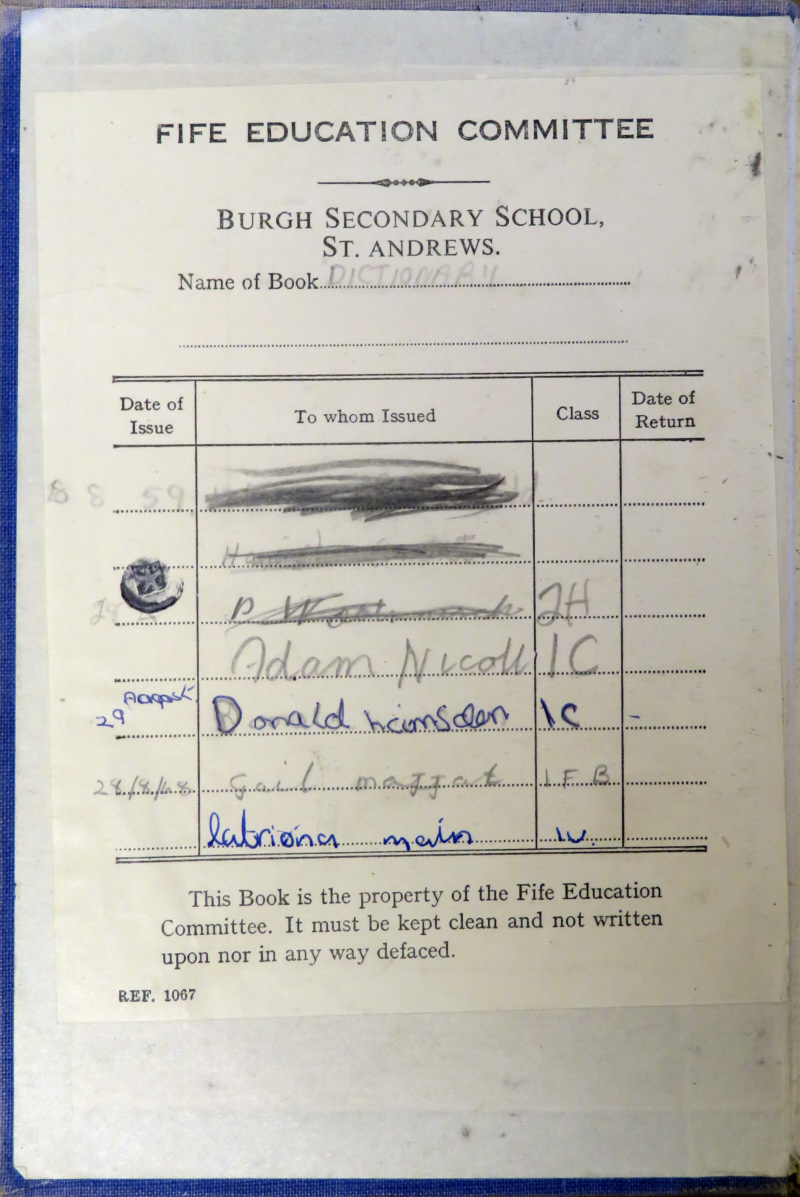 FIFE EDUCATION COMMITTEE
BURGH SECONDARY SCHOOL,
ST. ANDREWS.
Name of Book DICTIONARY
Date of Issue To whom Issued Class Date of Return
8 8 59
2H
Adam Nicoll 1C
29 August Donald Lumsden 1C -
28/8/68 Gail 1FB
Catriona main
This Book is the property of the Fife Education
Committee. It must be kept clean and not written
upon nor in any way defaced.
REF. 1067